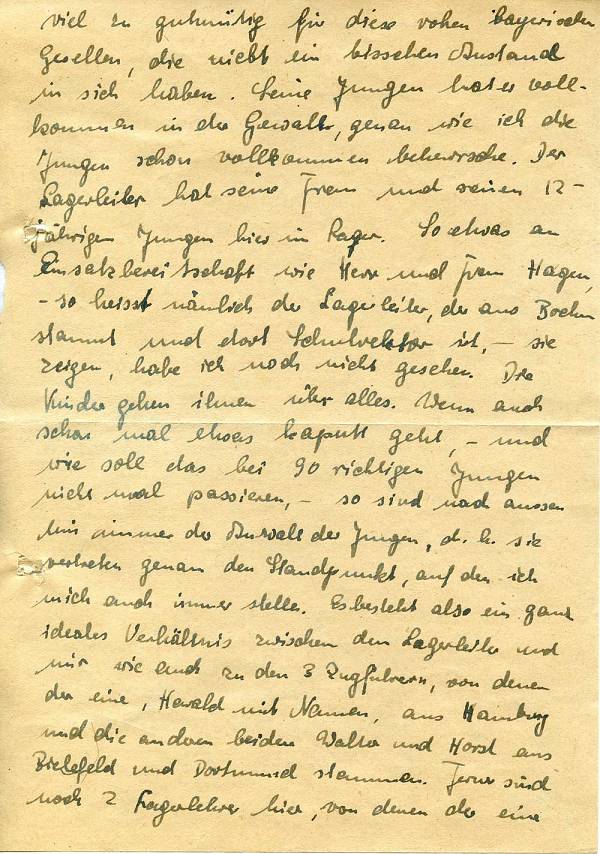 viel zu gutmütig für diese rohen bayerischen
Gesellen, die nicht ein bisschen Anstand
in sich haben. Seine Jungen hat er voll-
kommen in der Gewalt, genau wie ich die
Jungen schon vollkommen beherrsche. Der
Lagerleiter hat seine Frau und seinen 12-
jährigen Jungen hier im Lager. So etwas an
Einsatzbereitschaft wie Herr und Frau Hagen,
- so heisst nämlich der Lagerleiter, der aus Bochum
stammt und dort Schulrektor ist, - sie
zeigen, habe ich noch nicht gesehen. Die
Kinder gehen ihnen über alles. Wenn auch
schon mal etwas kaputt geht, - und
wie soll das bei 90 richtigen Jungen
nicht mal passieren, - so sind nach aussen
hin immer der Anwalt der Jungen, d. h. sie
vertreten genau den Standpunkt, auf den ich
mich auch immer stelle. Es besteht also ein ganz
ideales Verhältnis zwischen dem Lagerleiter und
mir wie auch zu den 3 Zugführern, von denen
der eine, Harald mit Namen, aus Hamburg
und die anderen beiden Walter und Horst aus
Bielefeld und Dortmund stammen. Ferner sind
noch 2 Lagerlehrer hier, von denen der eine